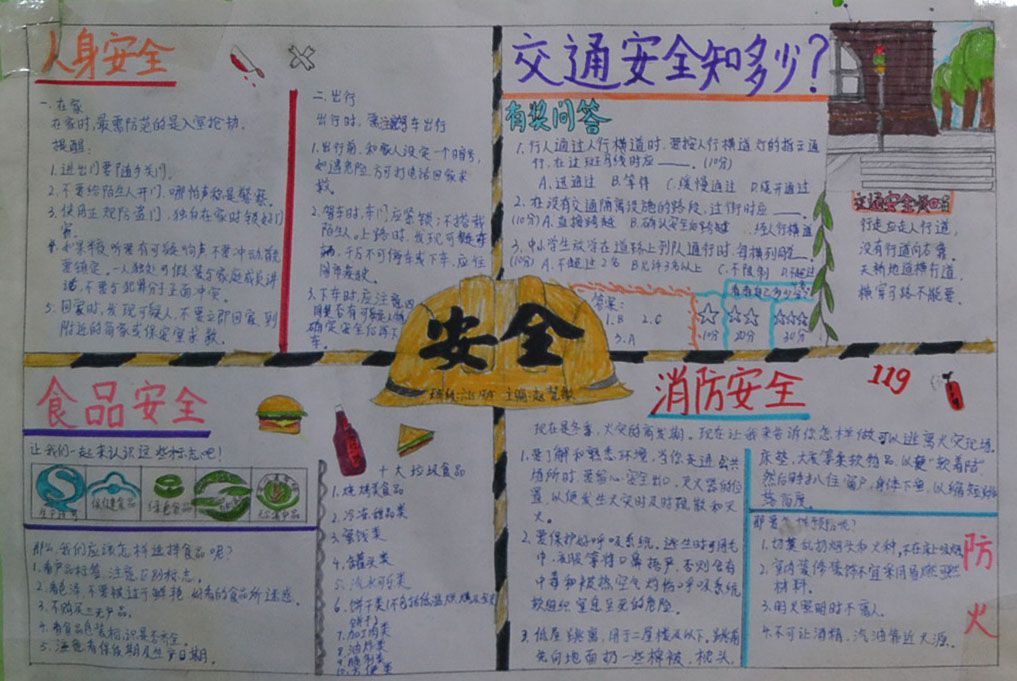 人身安全
一.在家
在家时,最需防范的是入室抢劫.
提醒:
1.进出门要随手关门.
2.不要给陌生人开门,哪怕声称是警察.
3.使用正规防盗门,独自在家时锁好门
窗.
4.如果半夜听到有可疑响声不要冲动,首先
要镇定.
话,不要与犯罪分子正面冲突.
5.回家时,发现可疑人,不要立即回家,到
附近的商家或保安室求救.
二.出行
出行时,需注意
1.出行前,和家人设定一个暗号,
如遇危险,方可打电话回家求
救.
2.驾车时,车门应紧锁;不搭载
陌生人。上路时,发现可疑
车辆,千万不可停车或下车,应往
3.下车时,应注意四
周是否有可疑人
确定安全后再下
车.
交通安全知多少?
有奖问答
1.行人通过人行横道时,要按人行横道灯的指示通
行,在过斑马线时应____.(10分)
A.迅速通过 B.等待 C.缓慢通过 D.绕开通过
2.在没有交通隔离设施的路段,过街时应____.
(10分)A.直接跨越 B.确认安全后跨越 C.经人行横道
3.中小学生放学在道路上列队通行时,每横列
(10分)A.不超过2名 B.允许3名以上 C.不限制 D.不超过
答案:
1.B 2.C
3.A
看看自己多少分?
10分 20分 30分
交通安全
行走应走人行道,
没有行道向右靠.
天桥地道横行道,
横穿马路不能要.
安全
食品安全
让我们一起来认识这些标志吧!
保健食品
绿色食品
那么我们应该怎样选择食品呢?
1.看产品标签,注意区别标志.
2.看色泽,不要被过于鲜艳,好看的食品所迷惑.
3.不购买三无产品.
4.看食品包装标识是否齐全.
5.注意看保质期及生产日期.
十大垃圾食品
1.烧烤类食品
2.冷冻甜品类
3.蜜饯类
4.罐头类
5.汽水可乐类
6.饼干类(不包括低温烘烤及全麦
饼干)
7.加工肉类
8.油炸类
9.腌制类
10.方便类
消防安全
119
现在是冬季,火灾的高发期。现在让我来告诉你怎样做可以逃离火灾现场.
1.要了解和熟悉环境,当你走进公共
场所时,要留心安全出口、灭火器的位
置,以便发生火灾时及时疏散和灭
火。
2.要保护好呼吸系统,逃生时可用毛
巾、衣服等将口鼻掩严,否则会有
中毒和被热空气灼伤呼吸系统
软组织窒息至死的危险.
3.低层跳离,用于二层楼及以下,跳前
先向地面扔一些棉被、枕头、
床垫、大衣等柔软物品,以便“软着陆”
然后用手扒住窗户,身体下垂,以缩短跳
落高度.
1.切莫乱扔烟头和火种,不在床上吸烟.
2.室内装修装饰不宜采用易燃
材料.
3.明火照明时不离人。
4.不可让酒精、汽油靠近火源.
防
火